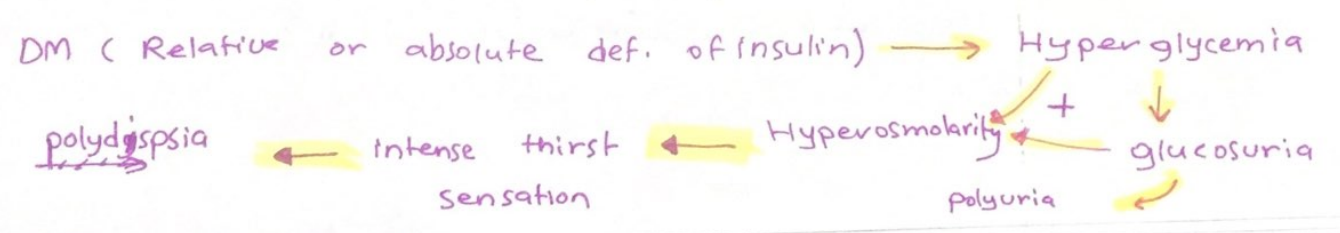 DM ( Relative or absolute def. of insulin) → Hyperglycemia
polydispsia ← intense thirst ← Hyperosmolarity + ← glucosuria
sensation polyuria